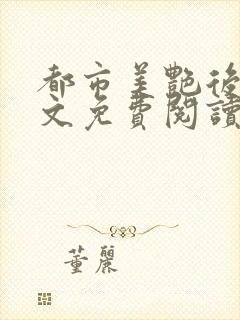 都市美艷後
文免費閱讀
董麗